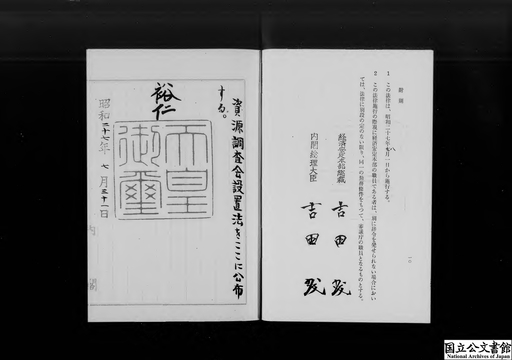 附則
1 この法律は、昭和二十七年八月一日から施行する。
2 この法律施行の際現に経済安定本部の職員である者は、別に辞令を発せられない場合におい
ては、法律に別段の定のない限り、同一の勤務条件をもつて、審議庁の職員となるものとする。
経済安定本部総裁 吉田茂
内閣総理大臣 吉田茂
一〇
資源調査会設置法をここに公布
する。
裕仁
天皇
御璽
昭和二十七年七月三十一日
内閣
国立公文書館
National Archives of Japan